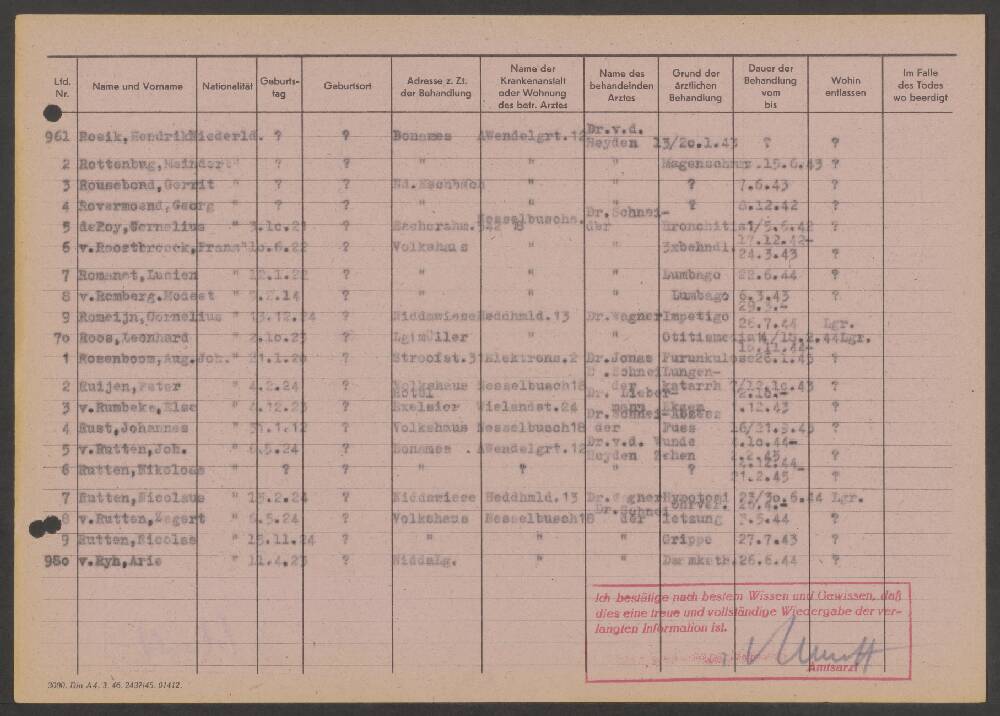 Lfd. Nr. Name und Vorname Nationalität Geburts-tag Geburtsort Adresse z. Zt. der Behandlung Name der Krankenanstalt oder Wohnung des betr. Arztes Name des behandelnden Arztes Grund der ärztlichen Behandlung Dauer der Behandlung vom bis Wohin entlassen Im Falle des Todes wo beerdigt
961 Rosik, Hendrik Niederld. ? ? Bonames AWendelgrt.12 Dr.v.d. Heyden 13/20.1.43 ? ?
2 Rottenbug, Meindert " ? ? " " " Magenschmer. 15.6.43 ?
3 Rousebond, Gerrit " ? ? Nd.Eschbach " " ? 7.6.43 ?
4 Rovermoend, Georg " ? ? " " " ? 8.12.42 ?
5 deRoy, Cornelius " 3.10.21 ? 542 Nesselbuschn. 18 Dr.Schnei-der Bronchitis 1/5.6.42 ?
6 v.Roostbroeck, Frans " 10.6.22 ? Volkshaus " " 3xbehndl. 17.12.42- 24.3.43 ?
7 Romanet, Lucien " 12.1.22 ? " " " Lumbago 22.6.44 ?
8 v.Romberg. Modest " 9.2.14 ? " " " Lumbago 6.3.43 ?
9 Romeijn, Cornelius " 13.12.24 ? Niddawiese Heddhmld.13 Dr.Wagner Impetigo 29.3.- 26.7.44 Lgr.
70 Roos, Leonhard " 2.10.23 ? Lgimüller " " Otitismedia 14/15.2.44 Lgr.
1 Rosenboom, Aug.Joh. " 21.1.20 ? Stroofst.31 Elektrons.2 Dr.Jonas Furunkulose 16.11.42- 26.1.43 ?
2 Ruijen, Peter " 4.2.24 ? Volkshaus Nesselbusch18 Dr.Schnei-der Lungen-katarrh 7/12.10.43 ?
3 v.Rumbeke, Else " 4.12.23 ? Hotel Exelsior Wielandst.24 Dr. Lieber-mann Ekzem 2.10.- .12.43 ?
4 Rust, Johannes " 31.1.12 ? Volkshaus Nesselbusch18 Dr.Schnei-der Abzess Fues 16/21.9.43 ?
5 v.Rutten, Joh. " 6.5.24 ? Bonames . AWendelgrt.12 Dr.v.d. Heyden Wunde Zehen 2.10.44- 2.2.45 ?
6 Rutten, Nikolous " ? ? " ? " ? 2.12.44- 21.2.45 ?
7 Rutten, Nicolaus " 13.2.24 ? Niddawiese Heddhmld.13 Dr.Wagner Hypotoni 23/30.6.44 Lgr.
8 v.Rutten, Zegert " 6.5.24 ? Volkshaus Nesselbusch18 Dr.Schnei-der Ohrver.letzung 26.4.- 3.5.44 ?
9 Rutten, Nicolas " 15.11.24 ? " " " Grippe 27.7.43 ?
980 v.Ryh, Arie " 11.4.23 ? NiddaLg. " " Darmkath. 26.6.44 ?
Ich bestätige nach bestem Wissen und Gewissen, daß
dies eine treue und vollständige Wiedergabe der ver-
langten Information ist.
Amtsarzt
3000. Din A 4. 3. 46. 2437/45. 01412.